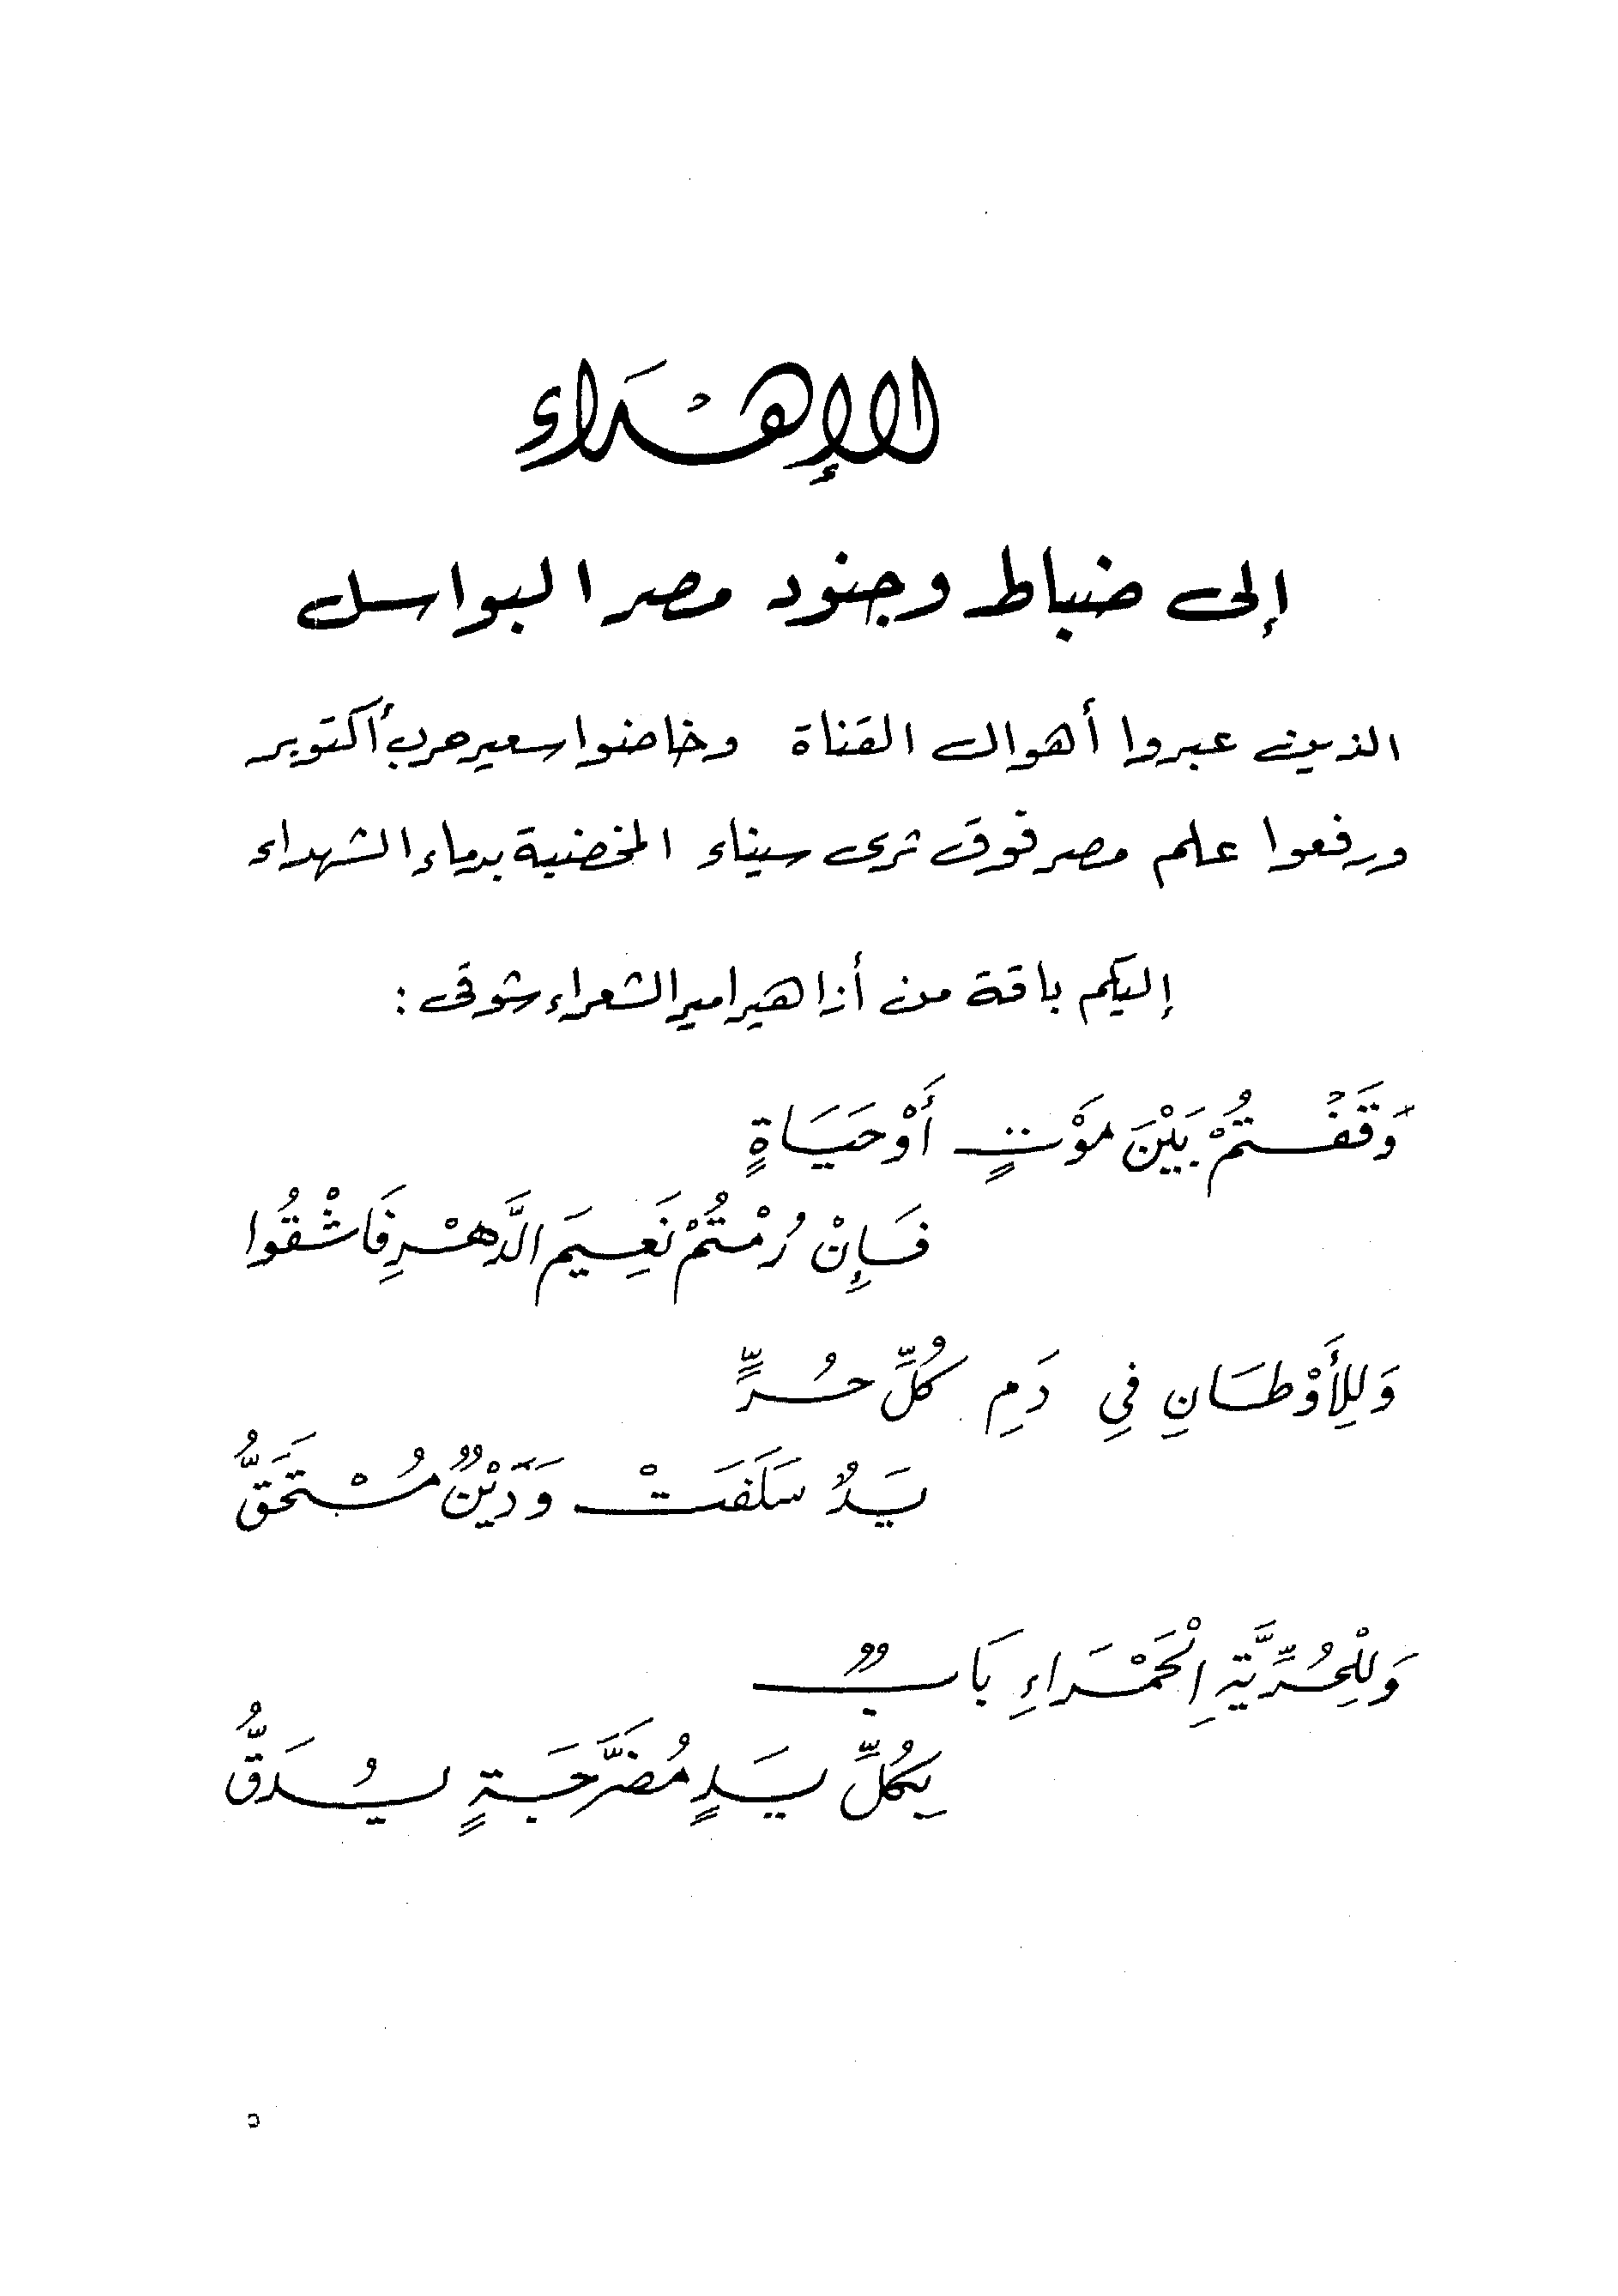 الإهْدَاءِ
إلى ضباط وجنود مصر البواسل
الذين عبروا أهوال القناة وخاضوا سعير حرب أكتوبر
ورفعوا علم مصر فوق ثرى سيناء المخضبة بدماء الشهداء
إليكم باقة من أزاهير امير الشعراء شوقى :
وَقَفْتُمْ بَيْنَ مَوْتٍ أَوْ حَيَاةٍ
فَإِنْ رُمْتُمْ نَعِيمَ الدَّهْرِ فَاشْقُوا
وَلِلأَوْطَانِ فِي دَمِ كُلِّ حُرٍّ
يَدٌ سَلَفَتْ وَدَيْنٌ مُسْتَحَقُّ
وَلِلْحُرِّيَّةِ الْحَمْرَاءِ بَابٌ
بِكُلِّ يَدٍ مُضَرَّجَةٍ يُدَقُّ
٥